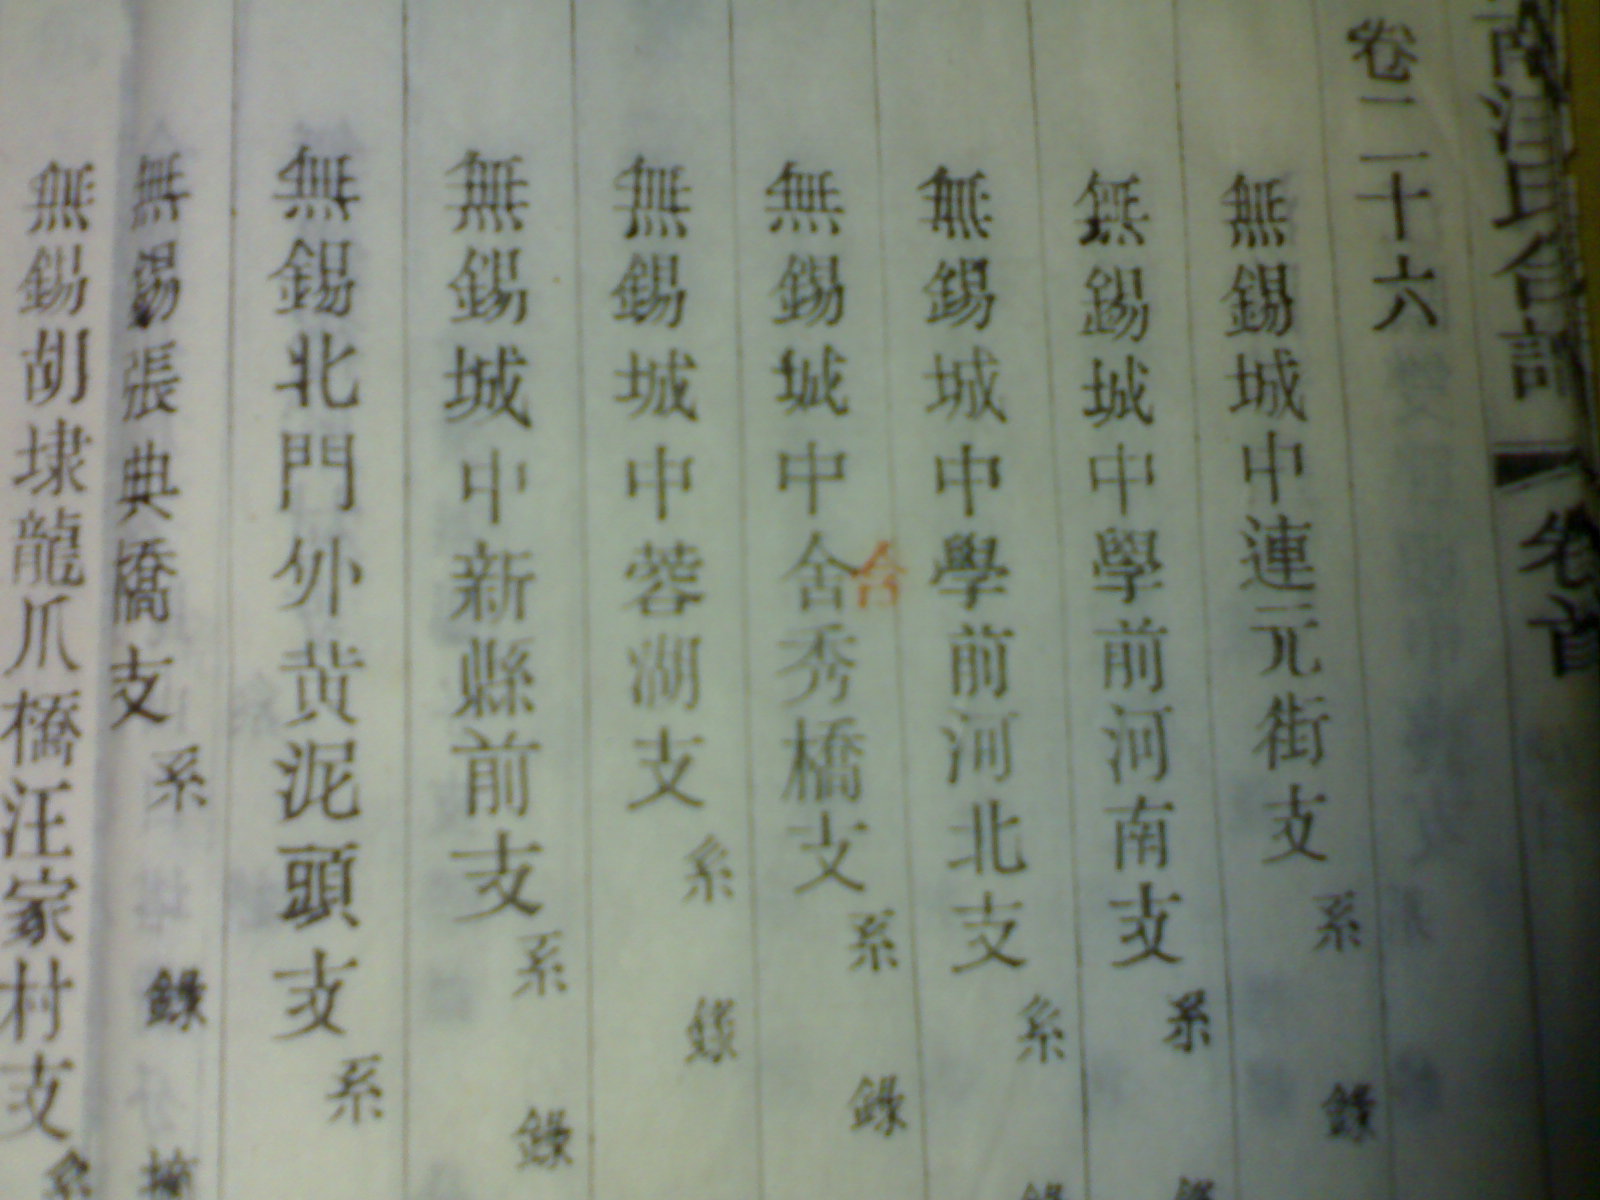 南汪氏合譜 卷首
卷二十六
無錫城中連元街支 系 錄
無錫城中學前河南支 系 錄
無錫城中學前河北支 系 錄
無錫城中舍秀橋支 系 錄
合
無錫城中蓉湖支 系 錄
無錫城中新縣前支 系 錄
無錫北門外黄泥頭支 系
無錫張典橋支 系 錄
無錫胡埭龍爪橋汪家村支 系